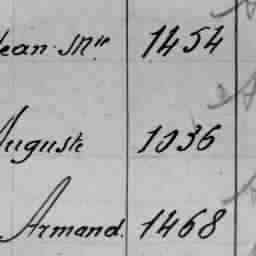 Jean Mie 1454
Auguste 1036
Armand. 1468